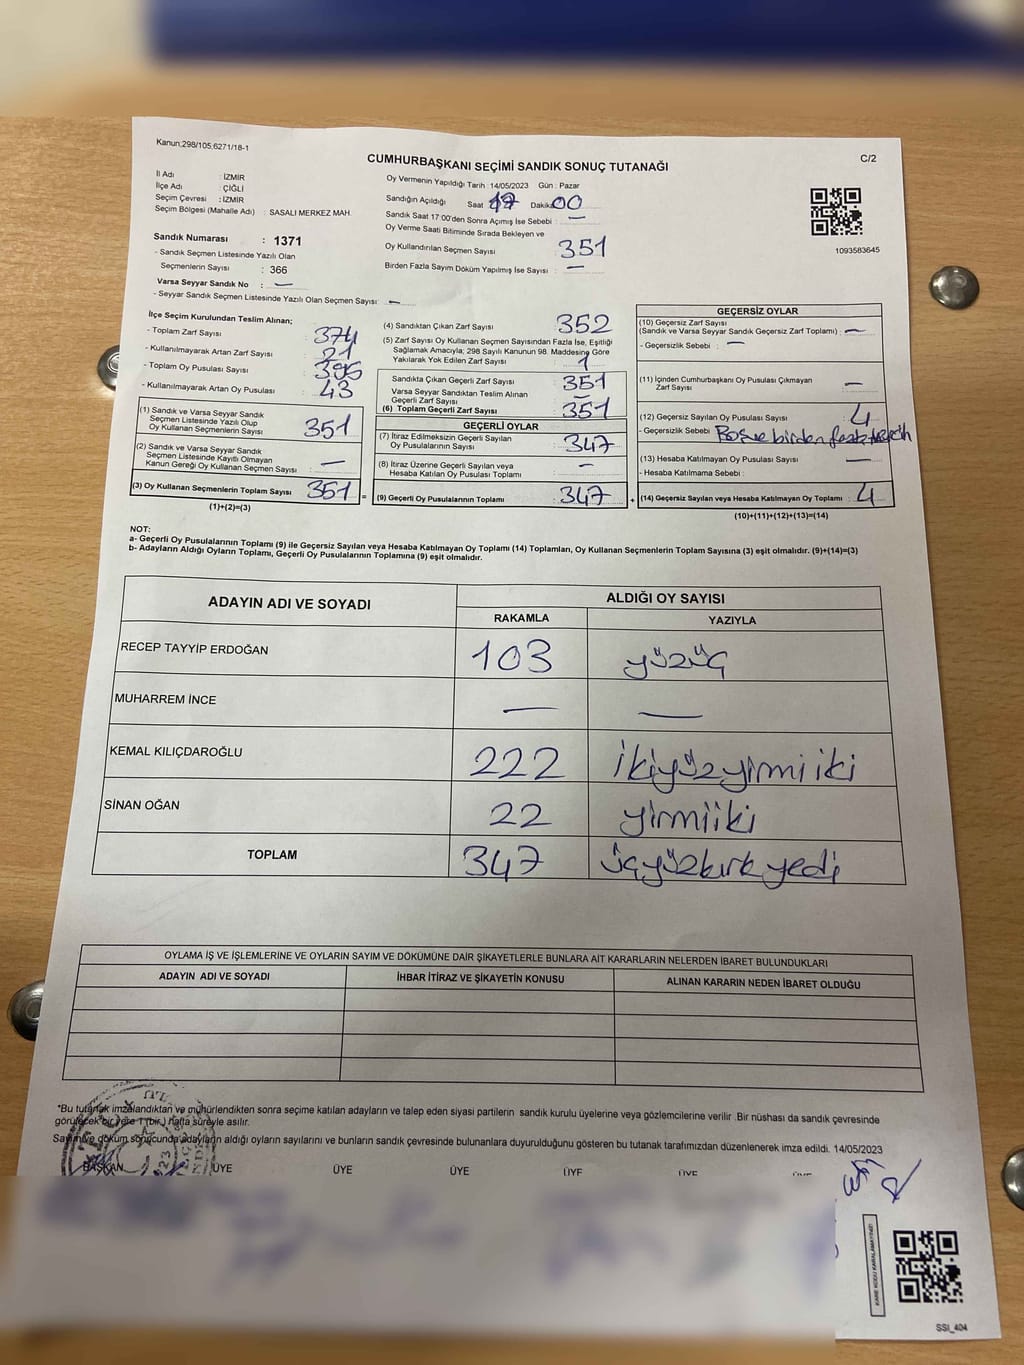 Kanun.298/105.6271/18-1
CUMHURBAŞKANI SEÇİMİ SANDIK SONUÇ TUTANAĞI
C/2
İl Adı : İZMİR
İlçe Adı : ÇİĞLİ
Seçim Çevresi : İZMİR
Seçim Bölgesi (Mahalle Adı) : SASALI MERKEZ MAH.
Sandık Numarası : 1371
- Sandık Seçmen Listesinde Yazılı Olan
Seçmenlerin Sayısı : 366
Varsa Seyyar Sandık No : —
- Seyyar Sandık Seçmen Listesinde Yazılı Olan Seçmen Sayısı: —
Oy Vermenin Yapıldığı Tarih : 14/05/2023 Gün : Pazar
Sandığın Açıldığı Saat 17 Dakika: 00
Sandık Saat 17:00'den Sonra Açımış İse Sebebi : —
Oy Verme Saati Bitiminde Sırada Bekleyen ve
Oy Kullandırılan Seçmen Sayısı 351
Birden Fazla Sayım Döküm Yapılmış İse Sayısı : —
1093583645
İlçe Seçim Kurulundan Teslim Alınan;
- Toplam Zarf Sayısı : 374
- Kullanılmayarak Artan Zarf Sayısı : 21
- Toplam Oy Pusulası Sayısı : 395
- Kullanılmayarak Artan Oy Pusulası : 43
(1) Sandık ve Varsa Seyyar Sandık
Seçmen Listesinde Yazılı Olup
Oy Kullanan Seçmenlerin Sayısı : 351
(2) Sandık ve Varsa Seyyar Sandık
Seçmen Listesinde Kayıtlı Olmayan
Kanun Gereği Oy Kullanan Seçmen Sayısı : —
(3) Oy Kullanan Seçmenlerin Toplam Sayısı : 351 =
(1)+(2)=(3)
(4) Sandıktan Çıkan Zarf Sayısı : 352
(5) Zarf Sayısı Oy Kullanan Seçmen Sayısından Fazla İse, Eşitliği
Sağlamak Amacıyla; 298 Sayılı Kanunun 98. Maddesine Göre
Yakılarak Yok Edilen Zarf Sayısı : 1
Sandıkta Çıkan Geçerli Zarf Sayısı : 351
Varsa Seyyar Sandıktan Teslim Alınan
Geçerli Zarf Sayısı : —
(6) Toplam Geçerli Zarf Sayısı : 351
GEÇERLİ OYLAR
(7) İtiraz Edilmeksizin Geçerli Sayılan
Oy Pusulalarının Sayısı : 347
(8) İtiraz Üzerine Geçerli Sayılan veya
Hesaba Katılan Oy Pusulası Toplamı : —
(9) Geçerli Oy Pusulalarının Toplamı : 347 +
GEÇERSİZ OYLAR
(10) Geçersiz Zarf Sayısı
(Sandık ve Varsa Seyyar Sandık Geçersiz Zarf Toplamı) : —
- Geçersizlik Sebebi : —
(11) İçinden Cumhurbaşkanı Oy Pusulası Çıkmayan
Zarf Sayısı : —
(12) Geçersiz Sayılan Oy Pusulası Sayısı : 4
- Geçersizlik Sebebi : Boş ve birden fazla tercih
(13) Hesaba Katılmayan Oy Pusulası Sayısı : —
- Hesaba Katılmama Sebebi :
(14) Geçersiz Sayılan veya Hesaba Katılmayan Oy Toplamı : 4
(10)+(11)+(12)+(13)=(14)
NOT:
a- Geçerli Oy Pusulalarının Toplamı (9) ile Geçersiz Sayılan veya Hesaba Katılmayan Oy Toplamı (14) Toplamları, Oy Kullanan Seçmenlerin Toplam Sayısına (3) eşit olmalıdır. (9)+(14)=(3)
b- Adayların Aldığı Oyların Toplamı, Geçerli Oy Pusulalarının Toplamına (9) eşit olmalıdır.
ADAYIN ADI VE SOYADI
ALDIĞI OY SAYISI
RAKAMLA YAZIYLA
RECEP TAYYİP ERDOĞAN 103 yüzüç
MUHARREM İNCE — —
KEMAL KILIÇDAROĞLU 222 ikiyüzyirmiiki
SİNAN OĞAN 22 yirmiiki
TOPLAM 347 üçyüzkırkyedi
OYLAMA İŞ VE İŞLEMLERİNE VE OYLARIN SAYIM VE DÖKÜMÜNE DAİR ŞİKAYETLERLE BUNLARA AİT KARARLARIN NELERDEN İBARET BULUNDUKLARI
ADAYIN ADI VE SOYADI İHBAR İTİRAZ VE ŞİKAYETİN KONUSU ALINAN KARARIN NEDEN İBARET OLDUĞU
*Bu tutanak imzalandıktan ve mühürlendikten sonra seçime katılan adayların ve talep eden siyasi partilerin sandık kurulu üyelerine veya gözlemcilerine verilir .Bir nüshası da sandık çevresinde
görülecek bir yere 1 (bir.) hafta süreyle asılır.
Sayım ve döküm sonucunda adayların aldığı oyların sayılarını ve bunların sandık çevresinde bulunanlara duyurulduğunu gösteren bu tutanak tarafımızdan düzenlenerek imza edildi. 14/05/2023
BAŞKAN ÜYE ÜYE ÜYE ÜYE ÜYE
KARE KODU KARALAMAYINIZ!
SSI_404